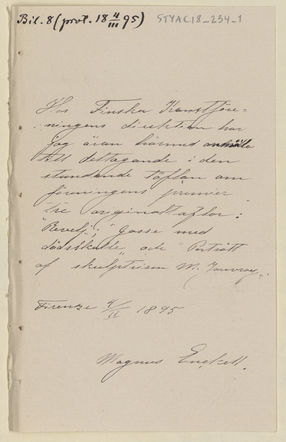 Bil. 8 (prot. 18 4/III 95) STYAC18_234_1
Hos Finska Konstföre-
ningens direktion har
jag äran härmed anhålla
till deltagande i den
stundande täflan om
föreningens premier
tre originaltaflor:
"Reveil", "Gosse med
dödskalle" och "Porträtt
af skulptrisen M. Jouvray".
Firenze 9/II 1895
Magnus Enckell.